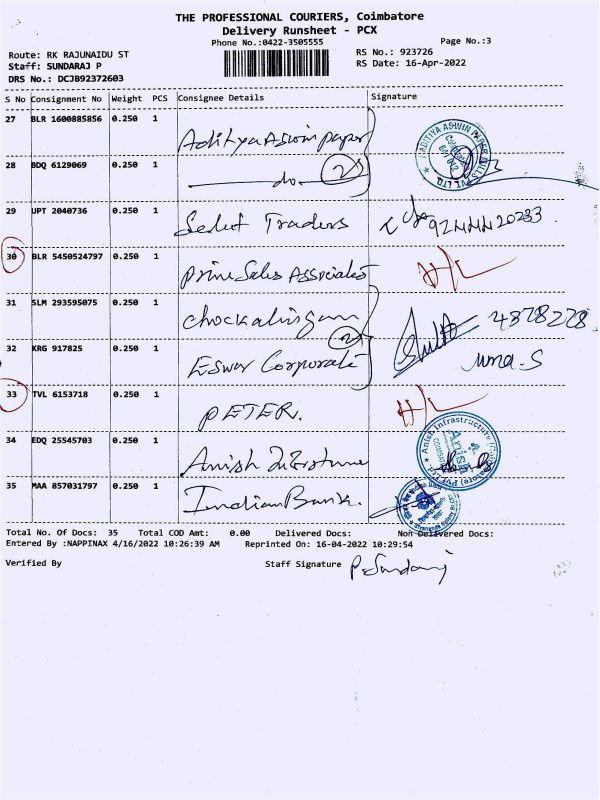 THE PROFESSIONAL COURIERS, Coimbatore
Delivery Runsheet - PCX
Phone No.:0422-3505555 Page No.:3
Route: RK RAJUNAIDU ST RS No.: 923726
Staff: SUNDARAJ P RS Date: 16-Apr-2022
DRS No.: DCJB92372603
S No Consignment No Weight PCS Consignee Details Signature
27 BLR 1600885856 0.250 1 Aditya Aswin paper
28 BDQ 6129069 0.250 1 do 2
29 UPT 2040736 0.250 1 Select Traders
30 BLR 5450524797 0.250 1 Prime Sales Associates H/L
31 SLM 293595075 0.250 1 Chockalingam 4878278
32 KRG 917825 0.250 1 2 Eswar Corporate uma.S
33 TVL 6153718 0.250 1 PETER. H/L
34 EDQ 25545703 0.250 1 Anish
35 MAA 857031797 0.250 1 Indian Bank.
Total No. Of Docs: 35 Total COD Amt: 0.00 Delivered Docs: Non Delivered Docs:
Entered By :NAPPINAX 4/16/2022 10:26:39 AM Reprinted On: 16-04-2022 10:29:54
Verified By Staff Signature P. Sundaraj